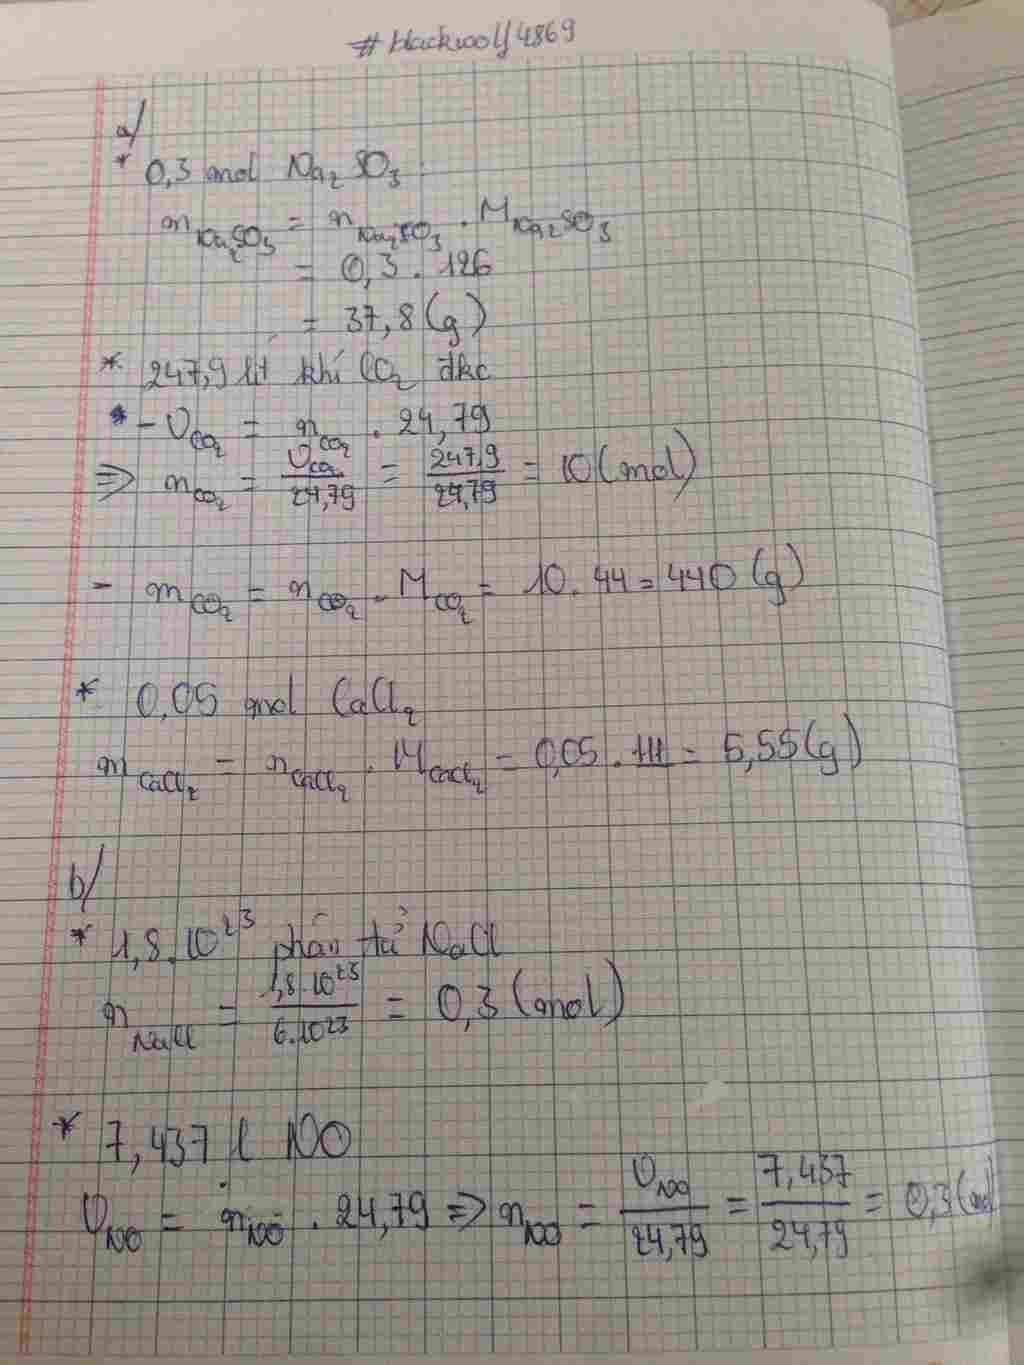 #blackwolf4869
a/
* 0,3 mol Na₂SO₃
m Na₂SO₃ = n Na₂SO₃ . M Na₂SO₃
= 0,3 . 126
= 37,8 (g)
* 247,9 lít khí CO₂ đkc
* - V CO₂ = n CO₂ . 24,79
⇒ n CO₂ = V CO₂ / 24,79 = 247,9 / 24,79 = 10 (mol)
- m CO₂ = n CO₂ . M CO₂ = 10 . 44 = 440 (g)
* 0,05 mol CaCl₂
m CaCl₂ = n CaCl₂ . M CaCl₂ = 0,05 . 111 = 5,55 (g)
b/
* 1,8.10²³ phân tử NaCl
n NaCl = 1,8.10²³ / 6.10²³ = 0,3 (mol)
* 7,437 l NO
V NO = n NO . 24,79 ⇒ n NO = V NO / 24,79 = 7,437 / 24,79 = 0,3 (mol)